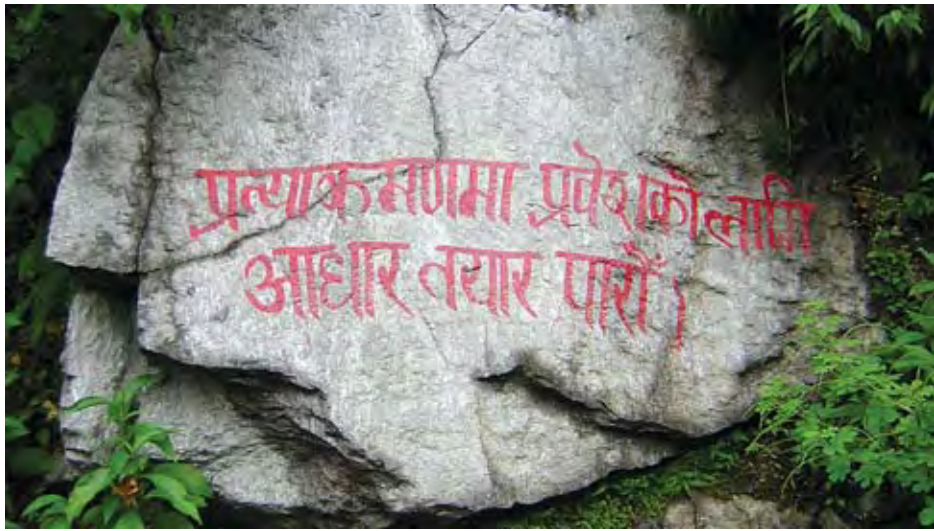 प्रत्याक्रमणमा प्रवेशको लागि
आधार तयार पारौँ ।